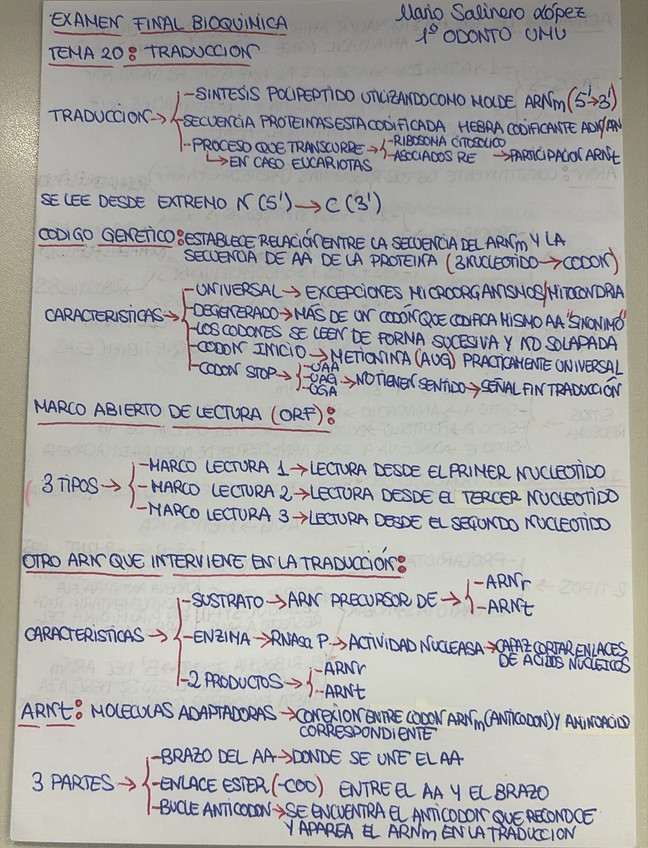 EXAMEN FINAL BIOQUIMICA
Mario Salinero López
1º ODONTO UMU
TEMA 20: TRADUCCION
TRADUCCION →
-SINTESIS POLIPEPTIDO UTILIZANDO COMO MOLDE ARNm (5'→3')
-SECUENCIA PROTEINAS ESTA CODIFICADA HEBRA CODIFICANTE ADN/ARN
-PROCESO QUE TRANSCURRE →
-RIBOSOMA CITOSOLICO
-ASOCIADOS RE → PARTICIPACION ARNt
↳ EN CASO EUCARIOTAS
SE LEE DESDE EXTREMO N (5') → C (3')
CODIGO GENETICO: ESTABLECE RELACIÓN ENTRE LA SECUENCIA DEL ARNm Y LA
SECUENCIA DE AA DE LA PROTEINA (3 NUCLEOTIDO → CODON)
CARACTERISTICAS →
-UNIVERSAL → EXCEPCIONES MICROORGANISMOS/MITOCONDRIA
-DEGENERADO → MÁS DE UN CODÓN QUE CODIFICA MISMO AA "SINONIMO"
-LOS CODONES SE LEEN DE FORMA SUCESIVA Y NO SOLAPADA
-CODON INICIO → METIONINA (AUG) PRACTICAMENTE UNIVERSAL
-CODON STOP →
-UAA
-UAG
-UGA
→ NO TIENEN SENTIDO → SEÑAL FIN TRADUCCIÓN
MARCO ABIERTO DE LECTURA (ORF):
3 TIPOS →
-MARCO LECTURA 1 → LECTURA DESDE EL PRIMER NUCLEOTIDO
-MARCO LECTURA 2 → LECTURA DESDE EL TERCER NUCLEOTIDO
-MARCO LECTURA 3 → LECTURA DESDE EL SEGUNDO NUCLEOTIDO
OTRO ARN QUE INTERVIENE EN LA TRADUCCIÓN:
CARACTERISTICAS →
-SUSTRATO → ARN PRECURSOR DE →
-ARNr
-ARNt
-ENZIMA → RNAsa P → ACTIVIDAD NUCLEASA → CAPAZ CORTAR ENLACES
DE ACIDOS NUCLEICOS
-2 PRODUCTOS →
-ARNr
-ARNt
ARNt: MOLECULAS ADAPTADORAS → CONEXION ENTRE CODON ARNm (ANTICODON) Y AMINOACIDO
CORRESPONDIENTE
3 PARTES →
-BRAZO DEL AA → DONDE SE UNE EL AA
-ENLACE ESTER (-COO) ENTRE EL AA Y EL BRAZO
-BUCLE ANTICODON → SE ENCUENTRA EL ANTICODON QUE RECONOCE
Y APAREA EL ARNm EN LA TRADUCCION